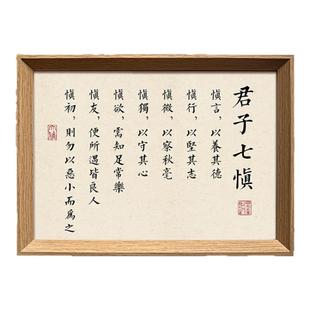 君子七慎
慎言，以養其德
慎行，以堅其志
慎微，以察秋毫
慎獨，以守其心
慎欲，需知足常樂
慎友，便所遇皆良人
慎初，則勿以惡小而為之